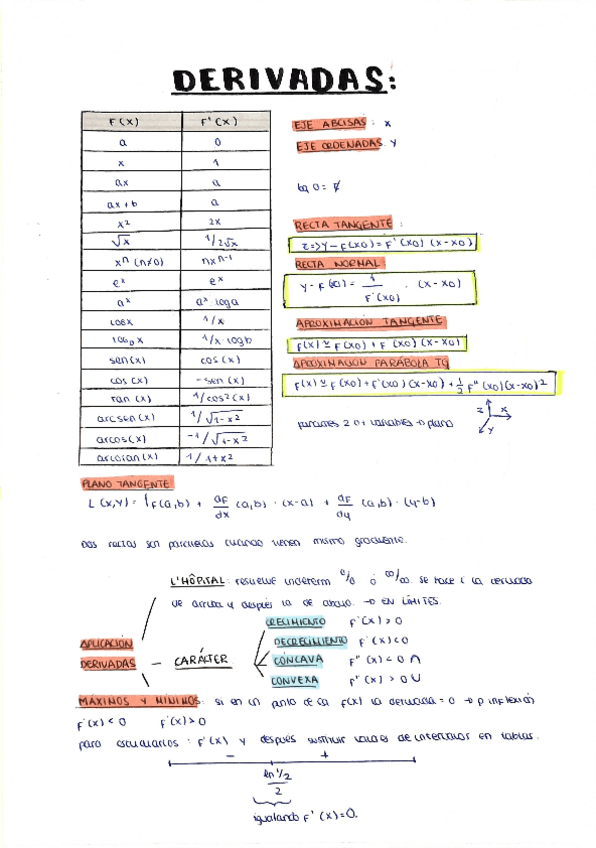 DERIVADAS:
F(x) F'(x)
a 0
x 1
ax a
ax+b a
x² 2x
√x 1/2√x
xⁿ (n≠0) nxⁿ⁻¹
eˣ eˣ
aˣ aˣ·loga
logx 1/x
log_b x 1/x·logb
sen(x) cos(x)
cos(x) -sen(x)
tan(x) 1/cos²(x)
arcsen(x) 1/√1-x²
arcos(x) -1/√1-x²
arcotan(x) 1/1+x²
EJE ABCISAS: x
EJE ORDENADAS: y
log 0 = ∄
RECTA TANGENTE:
r=>y-F(x0)=F'(x0)(x-x0)
RECTA NORMAL:
y-F(x0)= 1/F'(x0) · (x-x0)
APROXIMACIÓN TANGENTE
F(x)≃F(x0)+F'(x0)(x-x0)
APROXIMACION PARÁBOLA TG
F(x)≃F(x0)+F'(x0)(x-x0)+½F''(x0)(x-x0)²
2 o + variables → plano
z x
y
PLANO TANGENTE:
L(x,y)= F(a,b) + dF/dx (a,b)·(x-a) + dF/dy (a,b)·(y-b)
Dos rectas son paralelas cuando tienen mismo gradiente.
L'HÔPITAL: resuelve indeterm 0/0 ó ∞/∞. Se hace la derivada
de arriba y después la de abajo. → EN LÍMITES.
APLICACIÓN
DERIVADAS — CARÁCTER
CRECIMIENTO F'(x)>0
DECRECIMIENTO F'(x)<0
CÓNCAVA F''(x)<0 ∩
CONVEXA F''(x)>0 ∪
MÁXIMOS Y MÍNIMOS: si en un punto de la f(x) la derivada = 0 → p inflexión
F'(x)<0 F'(x)>0
para : F'(x) y después sustituir valores de intervalos en tablas.
- +
ln 1/2
2
igualando F'(x)=0.